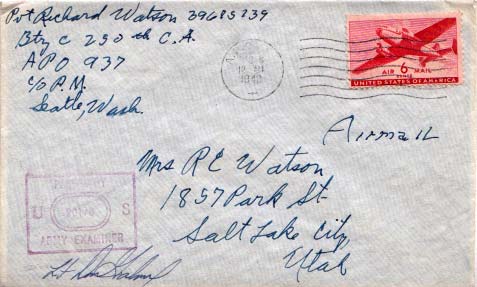 Pvt Richard Watson 39685239
Btry C 250th C.A.
APO 937
c/o P.M.
Seattle, Wash.
AIR 6¢ MAIL
UNITED STATES OF AMERICA
Airmail
Mrs R E Watson
1857 Park St
Salt Lake City
Utah
U S
ARMY EXAMINER
Lt